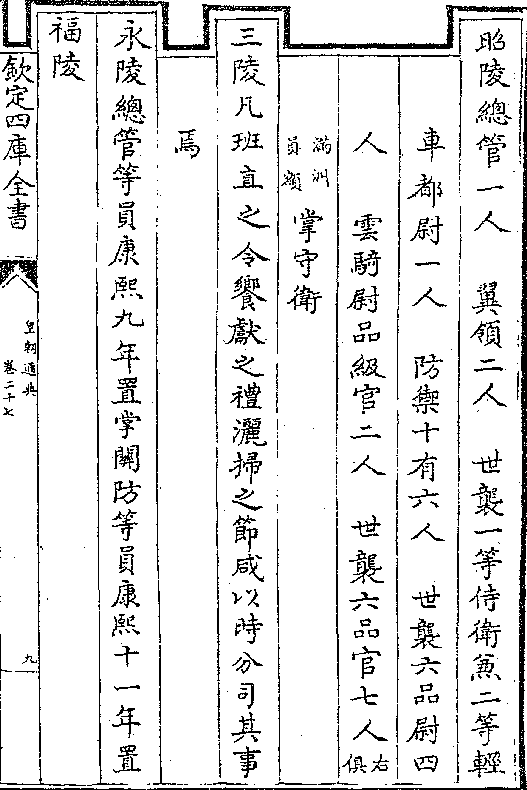 昭陵總管一人　翼領二人　世襲一等侍衛兼二等輕
車都尉一人　防禦十有六人　世襲六品尉四
人　雲騎尉品級官二人　世襲六品官七人右俱
滿洲員額掌守衛
三陵凡班直之令饗獻之禮灑掃之節咸以時分司其事
焉
永陵總管等員康熙九年置掌關防等員康熙十一年置
福陵
欽定四庫全書
皇朝通典
卷二十七
九